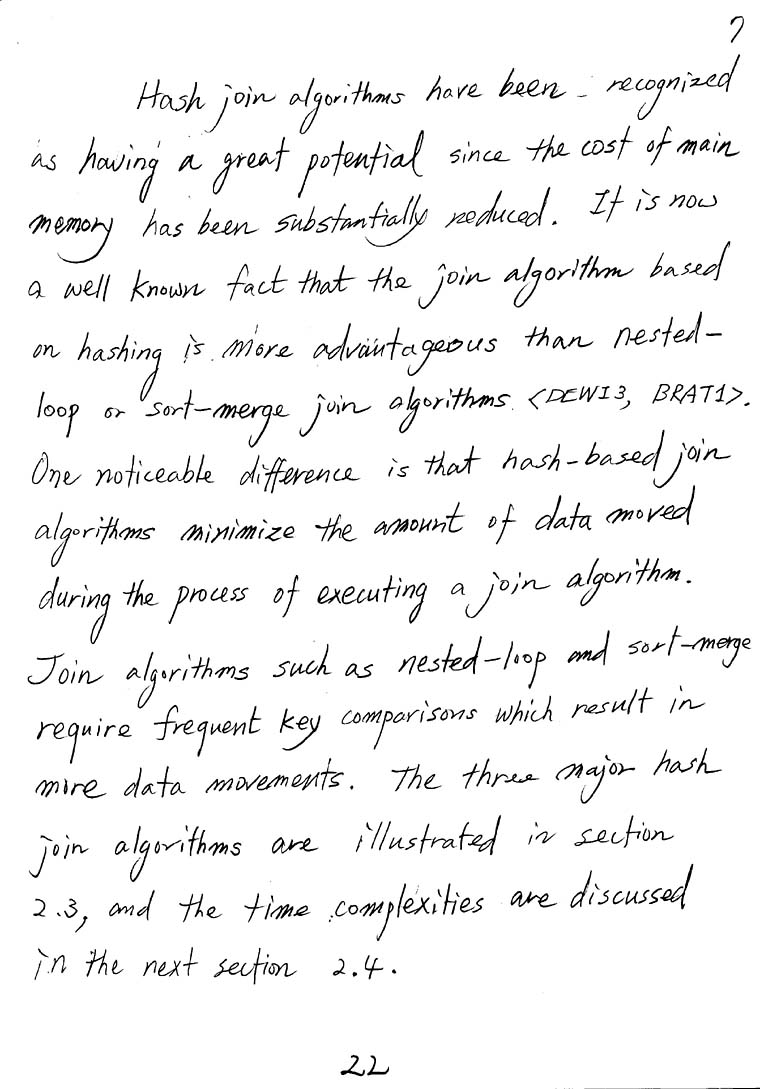 7
Hash join algorithms have been recognized
as having a great potential since the cost of main
memory has been substantially reduced. It is now
a well known fact that the join algorithm based
on hashing is more advantageous than nested-
loop or sort-merge join algorithms <DEWI3, BRAT1>.
One noticeable difference is that hash-based join
algorithms minimize the amount of data moved
during the process of executing a join algorithm.
Join algorithms such as nested-loop and sort-merge
require frequent key comparisons which result in
more data movements. The three major hash
join algorithms are illustrated in section
2.3, and the time complexities are discussed
in the next section 2.4.
22